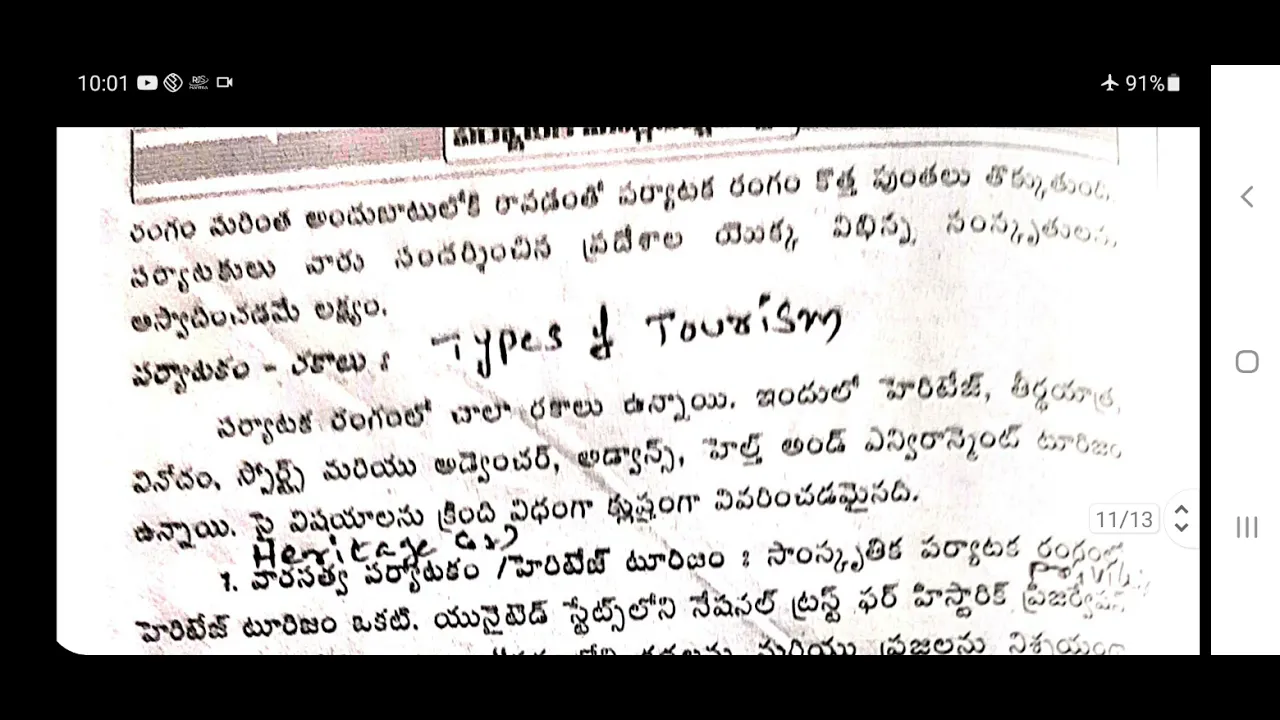 10:01
91%
రంగం మరింత అందుబాటులోకి రావడంతో పర్యాటక రంగం కొత్త పుంతలు తొక్కుతుంది.
పర్యాటకులు వారు సందర్శించిన ప్రదేశాల యొక్క విభిన్న సంస్కృతులను
ఆస్వాదించడమే లక్ష్యం.
పర్యాటకం - రకాలు : Types of Tourism
పర్యాటక రంగంలో చాలా రకాలు ఉన్నాయి. ఇందులో హెరిటేజ్, తీర్థయాత్ర,
వినోదం, స్పోర్ట్స్ మరియు అడ్వెంచర్, అడ్వాన్స్, హెల్త్ అండ్ ఎన్విరాన్మెంట్ టూరిజం
ఉన్నాయి. పై విషయాలను క్రింది విధంగా క్లుప్తంగా వివరించడమైనది.
11/13
Heritage
1. వారసత్వ పర్యాటకం /హెరిటేజ్ టూరిజం : సాంస్కృతిక పర్యాటక రంగంలో
హెరిటేజ్ టూరిజం ఒకటి. యునైటెడ్ స్టేట్స్‌లోని నేషనల్ ట్రస్ట్ ఫర్ హిస్టారిక్ ప్రిజర్వేషన్
మరియు ప్రజలను